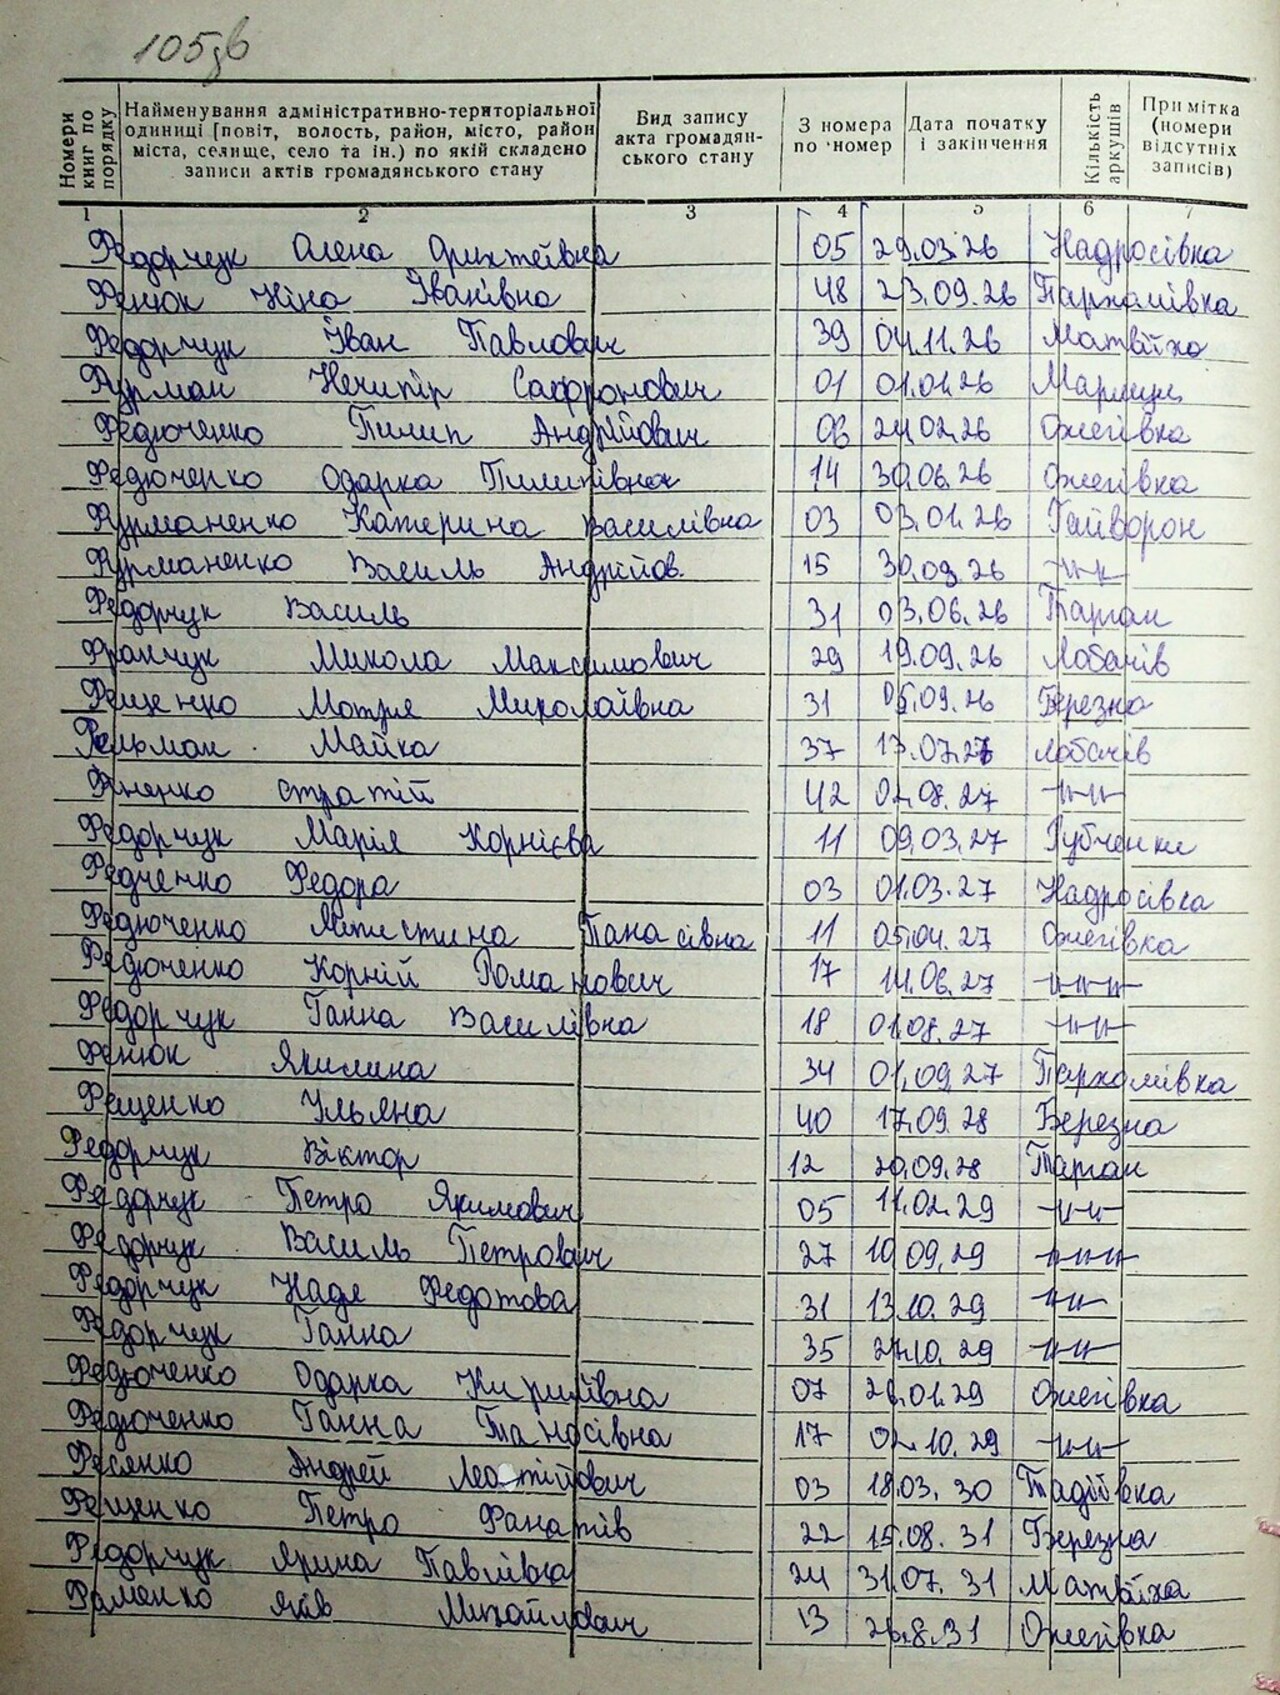 105зв
Номери книг по порядку
Найменування адміністративно-територіальної одиниці [повіт, волость, район, місто, район міста, селище, село та ін.) по якій складено записи актів громадянського стану
Вид запису акта громадян-ського стану
З номера по номер
Дата початку і закінчення
Кількість аркушів
Примітка (номери відсутніх записів)
1 2 3 4 5 6 7
Федорчук Олена 05 29.03.26 Надросівка
Фенюк Ніна Іванівна 48 23.09.26 Пархомівка
Федорчук Іван Павлович 39 04.11.26 Матвіїха
Фурман Нечипір Сафронович 01 01.01.26
Федюченко Пилип Андрійович 06 24.02.26 Ожегівка
Федюченко Одарка Пилипівна 14 30.06.26 Ожегівка
Фурманенко Катерина Василівна 03 03.01.26 Гайворон
Фурманенко Василь Андрійов. 15 30.09.26 -"-"-
Федорчук Василь 31 03.06.26 Тарган
Франчук Микола Максимович 29 19.09.26 Лобачів
Фещенко Мотря Миколаївна 31 05.09.26 Березна
Фельман Майка 37 17.07.27 Лобачів
Яненко Стратій 42 02.08.27 -"-"-
Федорчук Марія Корнієва 11 09.03.27 Рубченки
Федченко Федора 03 01.03.27 Надросівка
Федюченко Панасівна 11 05.04.27 Ожегівка
Федюченко Корній Романович 17 14.06.27 -"-"-"-
Федорчук Ганна Василівна 18 01.08.27 -"-"-
Фенюк Якилина 34 01.09.27 Пархомівка
Фещенко Ульяна 40 17.09.28 Березна
Федорчук Віктор 12 20.09.28 Тарган
Федорчук Петро Якимович 05 11.02.29 -"-"-
Федорчук Василь Петрович 27 10.09.29 -"-"-"-
Федорчук Надя Федотова 31 13.10.29 -"-"-
Федорчук Ганна 35 27.10.29 -"-"-
Федюченко Одарка Кирилівна 07 26.01.29 Ожегівка
Федюченко Ганна Танасівна 17 02.10.29 -"-"-
Фесянко Андрей 03 18.03.30 Тадіївка
Фещенко Петро 22 15.08.31 Березна
Федорчук Ярина Павлівна 24 31.07.31 Матвіїха
Фаменко Яків Михайлович 13 26.8.31 Ожегівка